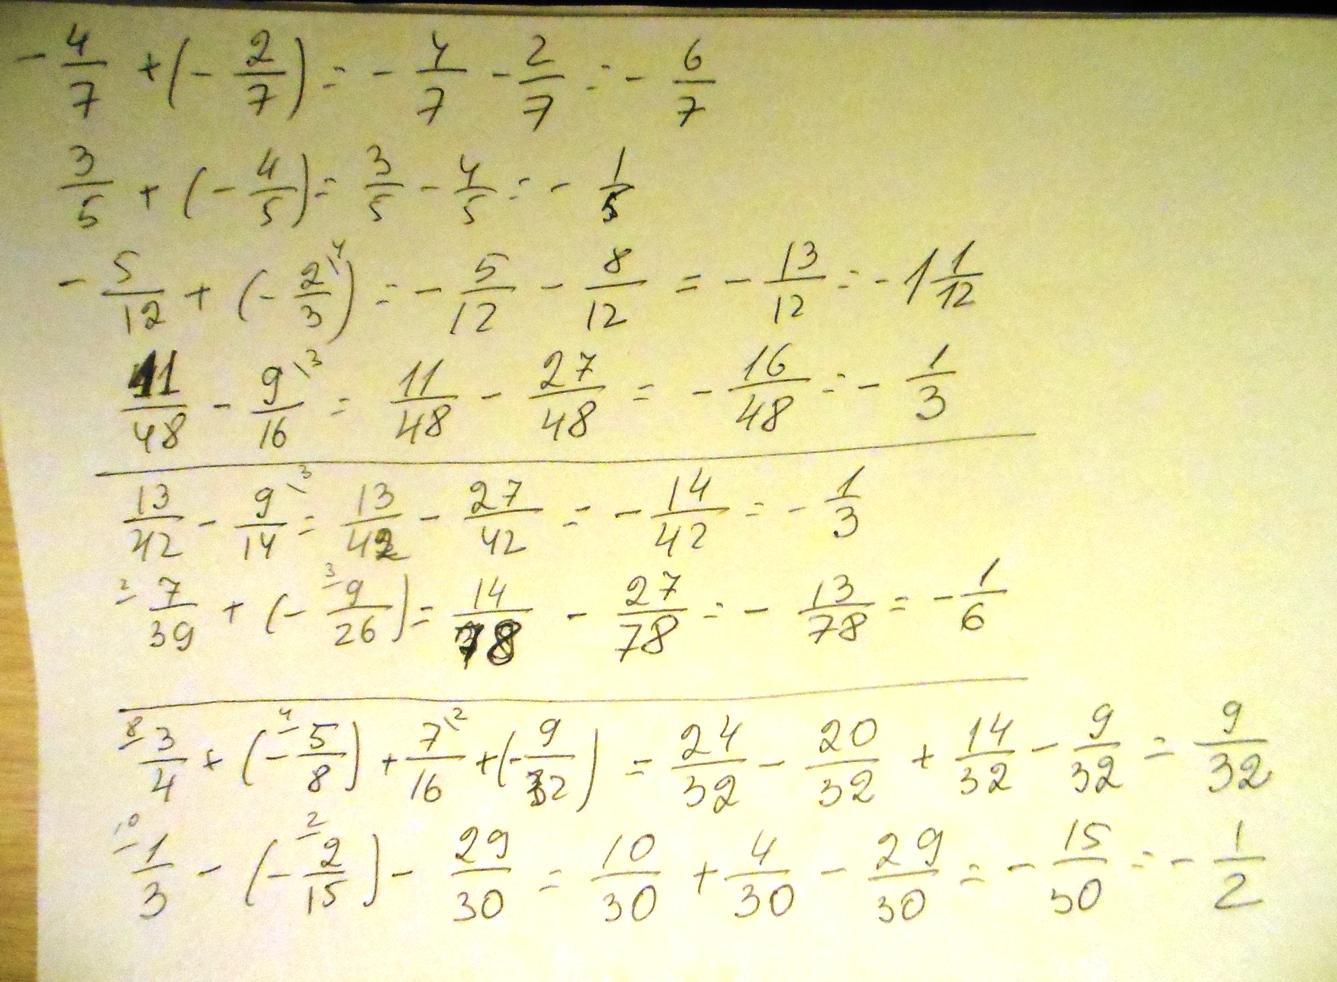 - 4/7 + (- 2/7) = - 4/7 - 2/7 = - 6/7
3/5 + (- 4/5) = 3/5 - 4/5 = - 1/5
- 5/12 + (- 2/3 \4) = - 5/12 - 8/12 = - 13/12 = - 1 1/12
11/48 - 9/16 \3 = 11/48 - 27/48 = - 16/48 = - 1/3
13/42 - 9/14 \3 = 13/42 - 27/42 = - 14/42 = - 1/3
2/ 7/39 + (- 3/ 9/26) = 14/78 - 27/78 = - 13/78 = - 1/6
8/ 3/4 + (- 4/ 5/8) + 7/16 \2 + (- 9/32) = 24/32 - 20/32 + 14/32 - 9/32 = 9/32
10/ 1/3 - (- 2/ 2/15) - 29/30 = 10/30 + 4/30 - 29/30 = - 15/30 = - 1/2